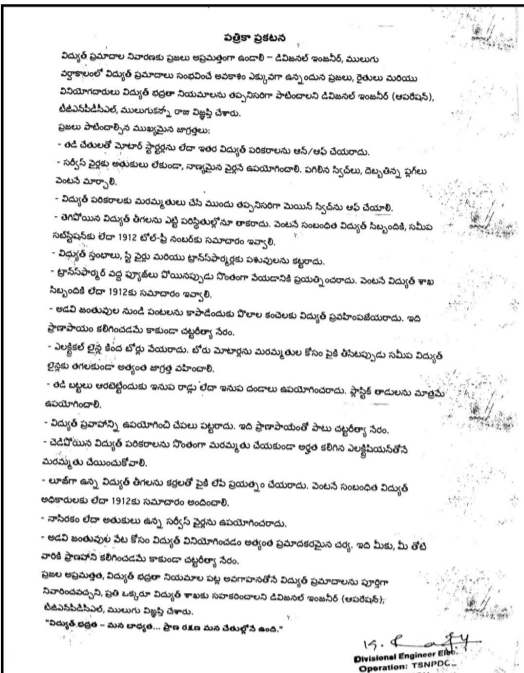 పత్రికా ప్రకటన
విద్యుత్ ప్రమాదాల నివారణకు ప్రజలు అప్రమత్తంగా ఉండాలి – డివిజనల్ ఇంజనీర్, ములుగు
వర్షాకాలంలో విద్యుత్ ప్రమాదాలు సంభవించే అవకాశం ఎక్కువగా ఉన్నందున ప్రజలు, రైతులు మరియు
వినియోగదారులు విద్యుత్ భద్రతా నియమాలను తప్పనిసరిగా పాటించాలని డివిజనల్ ఇంజనీర్ (ఆపరేషన్),
టీజీఎన్‌పీడీసీఎల్, ములుగు రాజు విజ్ఞప్తి చేశారు.
ప్రజలు పాటించాల్సిన ముఖ్యమైన జాగ్రత్తలు:
- తడి చేతులతో మోటార్ స్టార్టర్లను లేదా ఇతర విద్యుత్ పరికరాలను ఆన్/ఆఫ్ చేయరాదు.
- సర్వీస్ వైర్లకు అతుకులు లేకుండా, నాణ్యమైన వైర్లనే ఉపయోగించాలి. పగిలిన స్విచ్‌లు, దెబ్బతిన్న ప్లగ్‌లు
వెంటనే మార్చాలి.
- విద్యుత్ పరికరాలకు మరమ్మతులు చేసే ముందు తప్పనిసరిగా మెయిన్ స్విచ్‌ను ఆఫ్ చేయాలి.
- తెగిపోయిన విద్యుత్ తీగలను ఎట్టి పరిస్థితుల్లోనూ తాకరాదు. వెంటనే సంబంధిత విద్యుత్ సిబ్బందికి, సమీప
సబ్‌స్టేషన్‌కు లేదా 1912 టోల్-ఫ్రీ నంబర్‌కు సమాచారం ఇవ్వాలి.
- విద్యుత్ స్తంభాలు, స్టే వైర్లు మరియు ట్రాన్స్‌ఫార్మర్లకు పశువులను కట్టరాదు.
- ట్రాన్స్‌ఫార్మర్ వద్ద ఫ్యూజ్‌లు పోయినప్పుడు సొంతంగా వేయడానికి ప్రయత్నించరాదు. వెంటనే విద్యుత్ శాఖ
సిబ్బందికి లేదా 1912కు సమాచారం ఇవ్వాలి.
- అడవి జంతువుల నుండి పంటలను కాపాడేందుకు పొలాల కంచెలకు విద్యుత్ ప్రవహింపజేయరాదు. ఇది
ప్రాణాపాయం కలిగించడమే కాకుండా చట్టరీత్యా నేరం.
- ఎలక్ట్రికల్ లైన్ల కింద బోర్లు వేయరాదు. బోరు మోటార్లను మరమ్మతుల కోసం పైకి తీసేటప్పుడు సమీప విద్యుత్
లైన్లకు తగలకుండా అత్యంత జాగ్రత్త వహించాలి.
- తడి బట్టలు ఆరబెట్టేందుకు ఇనుప రాడ్లు లేదా ఇనుప దండాలు ఉపయోగించరాదు. ప్లాస్టిక్ తాడులను మాత్రమే
ఉపయోగించాలి.
- విద్యుత్ ప్రవాహాన్ని ఉపయోగించి చేపలు పట్టరాదు. ఇది ప్రాణాపాయంతో పాటు చట్టరీత్యా నేరం.
- చెడిపోయిన విద్యుత్ పరికరాలను సొంతంగా మరమ్మతు చేయకుండా అర్హత కలిగిన ఎలక్ట్రీషియన్‌తోనే
మరమ్మతు చేయించుకోవాలి.
- లూజ్‌గా ఉన్న విద్యుత్ తీగలను కర్రలతో పైకి లేపే ప్రయత్నం చేయరాదు. వెంటనే సంబంధిత విద్యుత్
అధికారులకు లేదా 1912కు సమాచారం అందించాలి.
- నాసిరకం లేదా అతుకులు ఉన్న సర్వీస్ వైర్లను ఉపయోగించరాదు.
- అడవి జంతువుల వేట కోసం విద్యుత్ వినియోగించడం అత్యంత ప్రమాదకరమైన చర్య. ఇది మీకు, మీ తోటి
వారికి ప్రాణహాని కలిగించడమే కాకుండా చట్టరీత్యా నేరం.
ప్రజల అప్రమత్తత, విద్యుత్ భద్రతా నియమాల పట్ల అవగాహనతోనే విద్యుత్ ప్రమాదాలను పూర్తిగా
నివారించవచ్చని, ప్రతి ఒక్కరూ విద్యుత్ శాఖకు సహకరించాలని డివిజనల్ ఇంజనీర్ (ఆపరేషన్),
టీజీఎన్‌పీడీసీఎల్, ములుగు విజ్ఞప్తి చేశారు.
"విద్యుత్ భద్రత – మన బాధ్యత... ప్రాణ రక్షణ మన చేతుల్లోనే ఉంది."
Divisional Engineer Elec.
Operation: TSNPDC